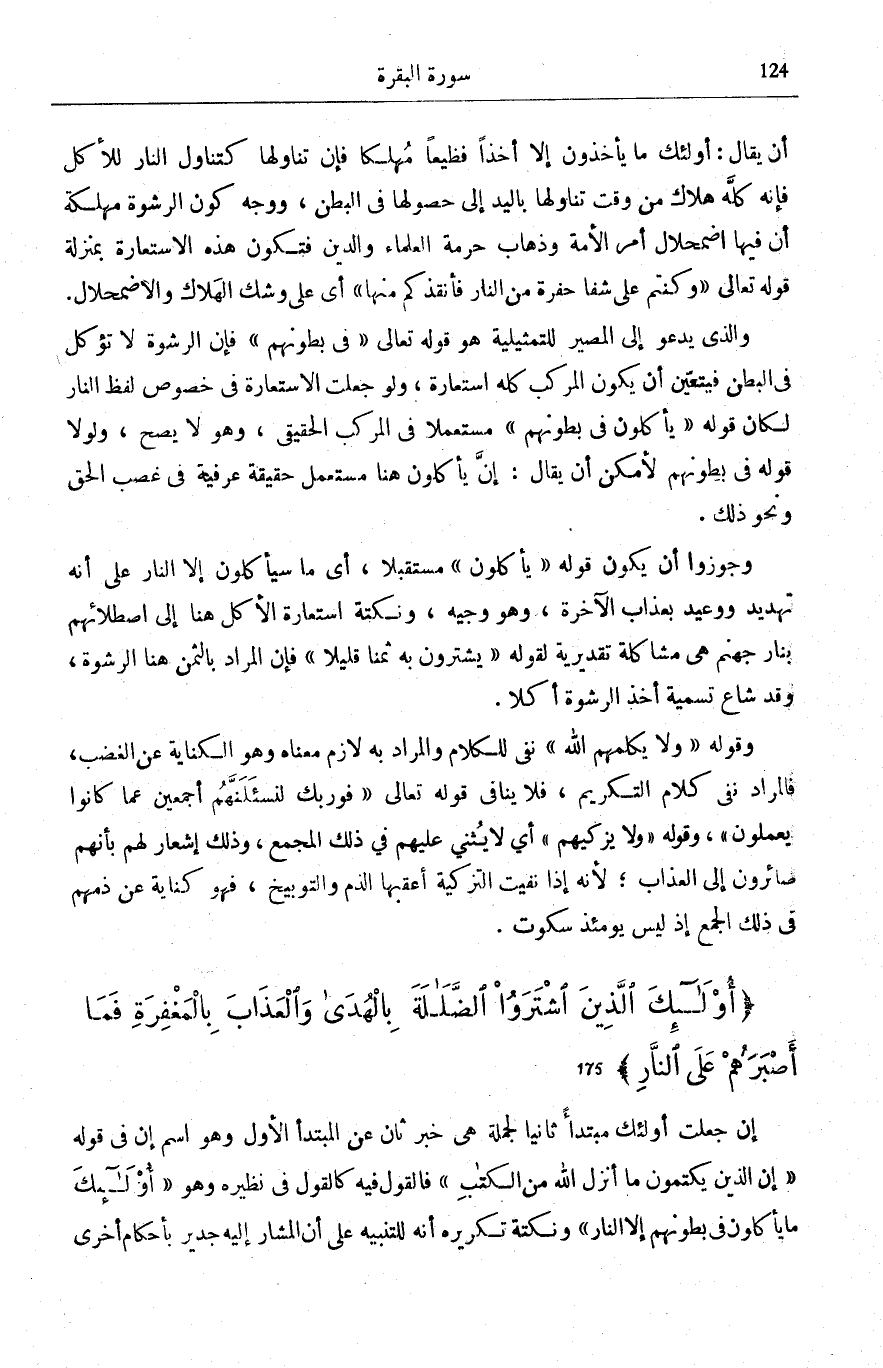 124
سورة البقرة
أن يقال : أولئك ما يأخذون إلا أخذاً فظيعاً مُهلكا فإن تناولها كتناول النار للأكل
فإنه كلَّه هلاك من وقت تناولها باليد إلى حصولها فى البطن ، ووجه كون الرشوة مهلكة
أن فيها اضمحلال أمر الأمة وذهاب حرمة العلماء والدين فتكون هذه الاستعارة بمنزلة
قوله تعالى «وكنتم على شفا حفرة من النار فأنقذكم منها» أى على وشك الهَلاك والاضمحلال.
والذى يدعو إلى المصير للتمثيلية هو قوله تعالى « فى بطونهم » فإن الرشوة لا تؤكل
فى البطن فيتعيّن أن يكون المركب كله استعارة ، ولو جعلت الاستعارة فى خصوص لفظ النار
لكان قوله « يأكلون فى بطونهم » مستعملا فى المركب الحقيقى ، وهو لا يصح ، ولولا
قوله فى بطونهم لأمكن أن يقال : إنَّ يأكلون هنا مستعمل حقيقة عرفية فى غصب الحق
ونحو ذلك .
وجوزوا أن يكون قوله « يأكلون » مستقبلا ، أى ما سيأكلون إلا النار على أنه
تهديد ووعيد بعذاب الآخرة ، وهو وجيه ، ونكتة استعارة الأكل هنا إلى اصطلائهم
بنار جهنم هى مشاكلة تقديرية لقوله « يشترون به ثمنا قليلا » فإن المراد بالثمن هنا الرشوة ،
وقد شاع تسمية أخذ الرشوة أكلا .
وقوله « ولا يكلمهم الله » نفى للكلام والمراد به لازم معناه وهو الكناية عن الغضب،
فالمراد نفى كلام التكريم ، فلا ينافى قوله تعالى « فوربك لنسئَلَنَّهُم أجمعين عما كانوا
يعملون» ، وقوله «ولا يزكيهم » أي لا يُثني عليهم في ذلك المجمع ، وذلك إشعار لهم بأنهم
صائرون إلى العذاب ؛ لأنه إذا نفيت التزكية أعقبها الذم والتوبيخ ، فهو كناية عن ذمهم
فى ذلك الجمع إذ ليس يومئذ سكوت .
﴿ أُوْلَٰٓئِكَ ٱلَّذِينَ ٱشْتَرَوُاْ ٱلضَّلَٰلَةَ بِالْهُدَىٰ وَٱلْعَذَابَ بِالْمَغْفِرَةِ فَمَا
أَصْبَرَهُمْ عَلَى ٱلنَّارِ ﴾ 175
إن جعلت أولئك مبتدأً ثانيا لجملة هى خبر ثان عن المبتدأ الأول وهو اسم إن فى قوله
« إن الذين يكتمون ما أنزل الله من الكتٰبِ » فالقول فيه كالقول فى نظيره وهو « أُوْلَٰٓئِكَ
ما يأكلون فى بطونهم إلا النار» ونكتة تكريره أنه للتنبيه على أن المشار إليه جدير بأحكام أخرى